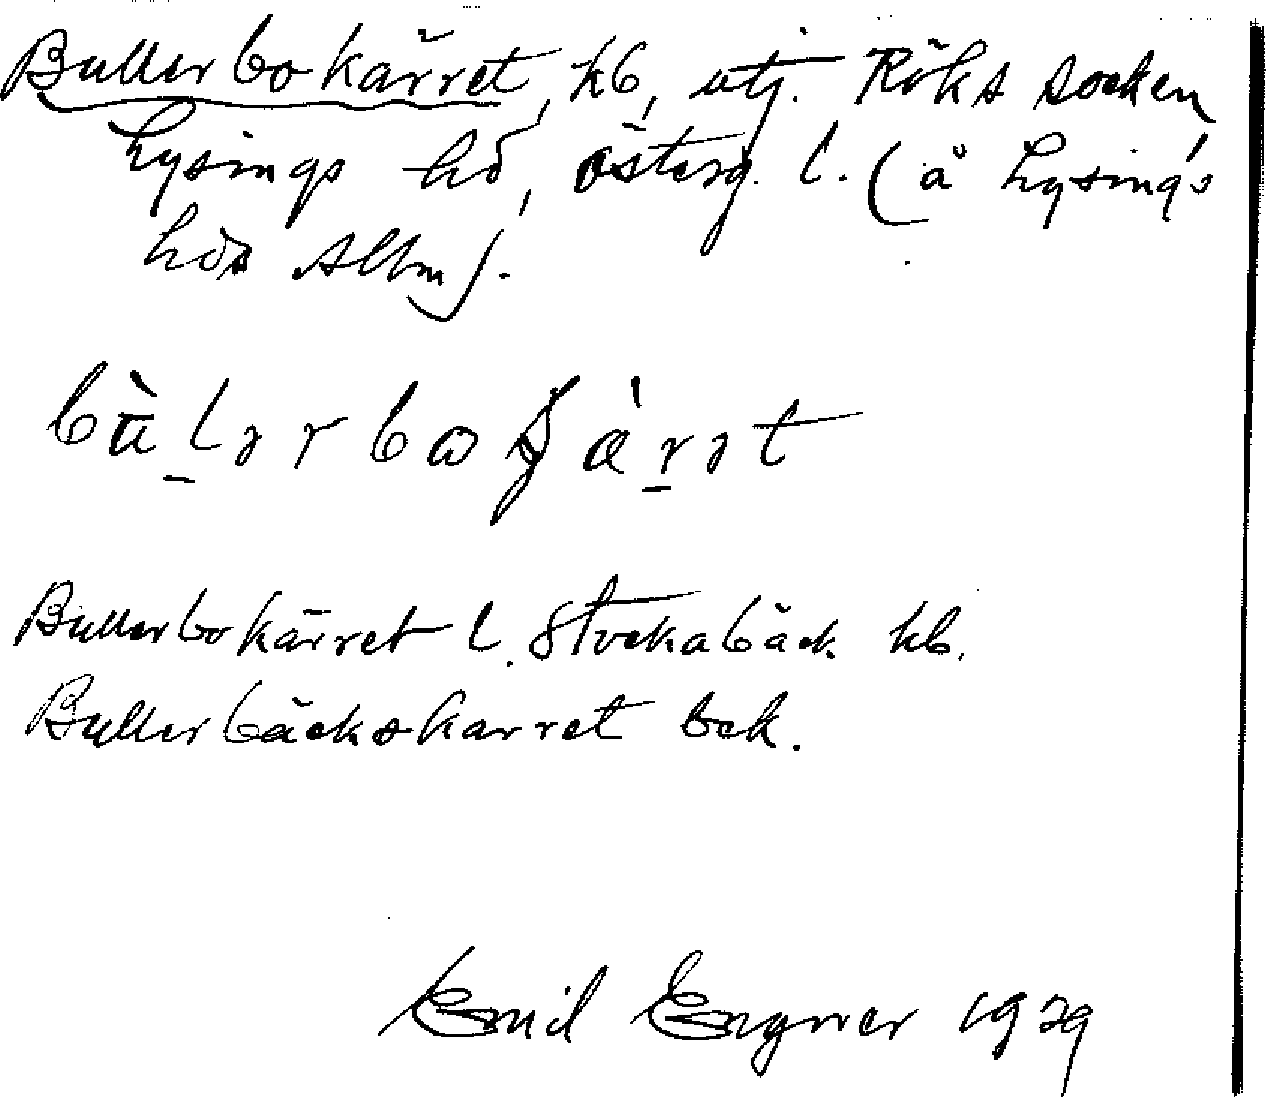 Bullerbokärret, kb, utj. Röks socken
Lysings hd, Österg. l. (å Lysings
hds Allm).
bùlərboʃä̀rət
Bullerbokärret l. Stockabäck kb.
Bullerbäckskärret bek.
Emil Engner 1929